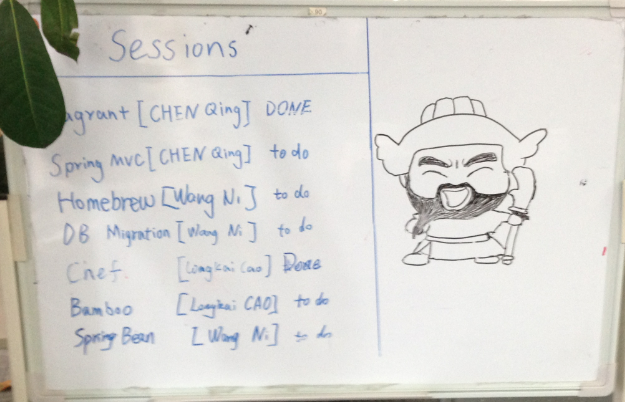 Sessions
agrant [CHEN Qing] DONE
Spring MVC [CHEN Qing] to do
Homebrew [Wang Ni] to do
DB Migration [Wang Ni] to do
Chef [Longkai Cao] Done
Bamboo [Longkai CAO] to do
Spring Bean [Wang Ni] to do